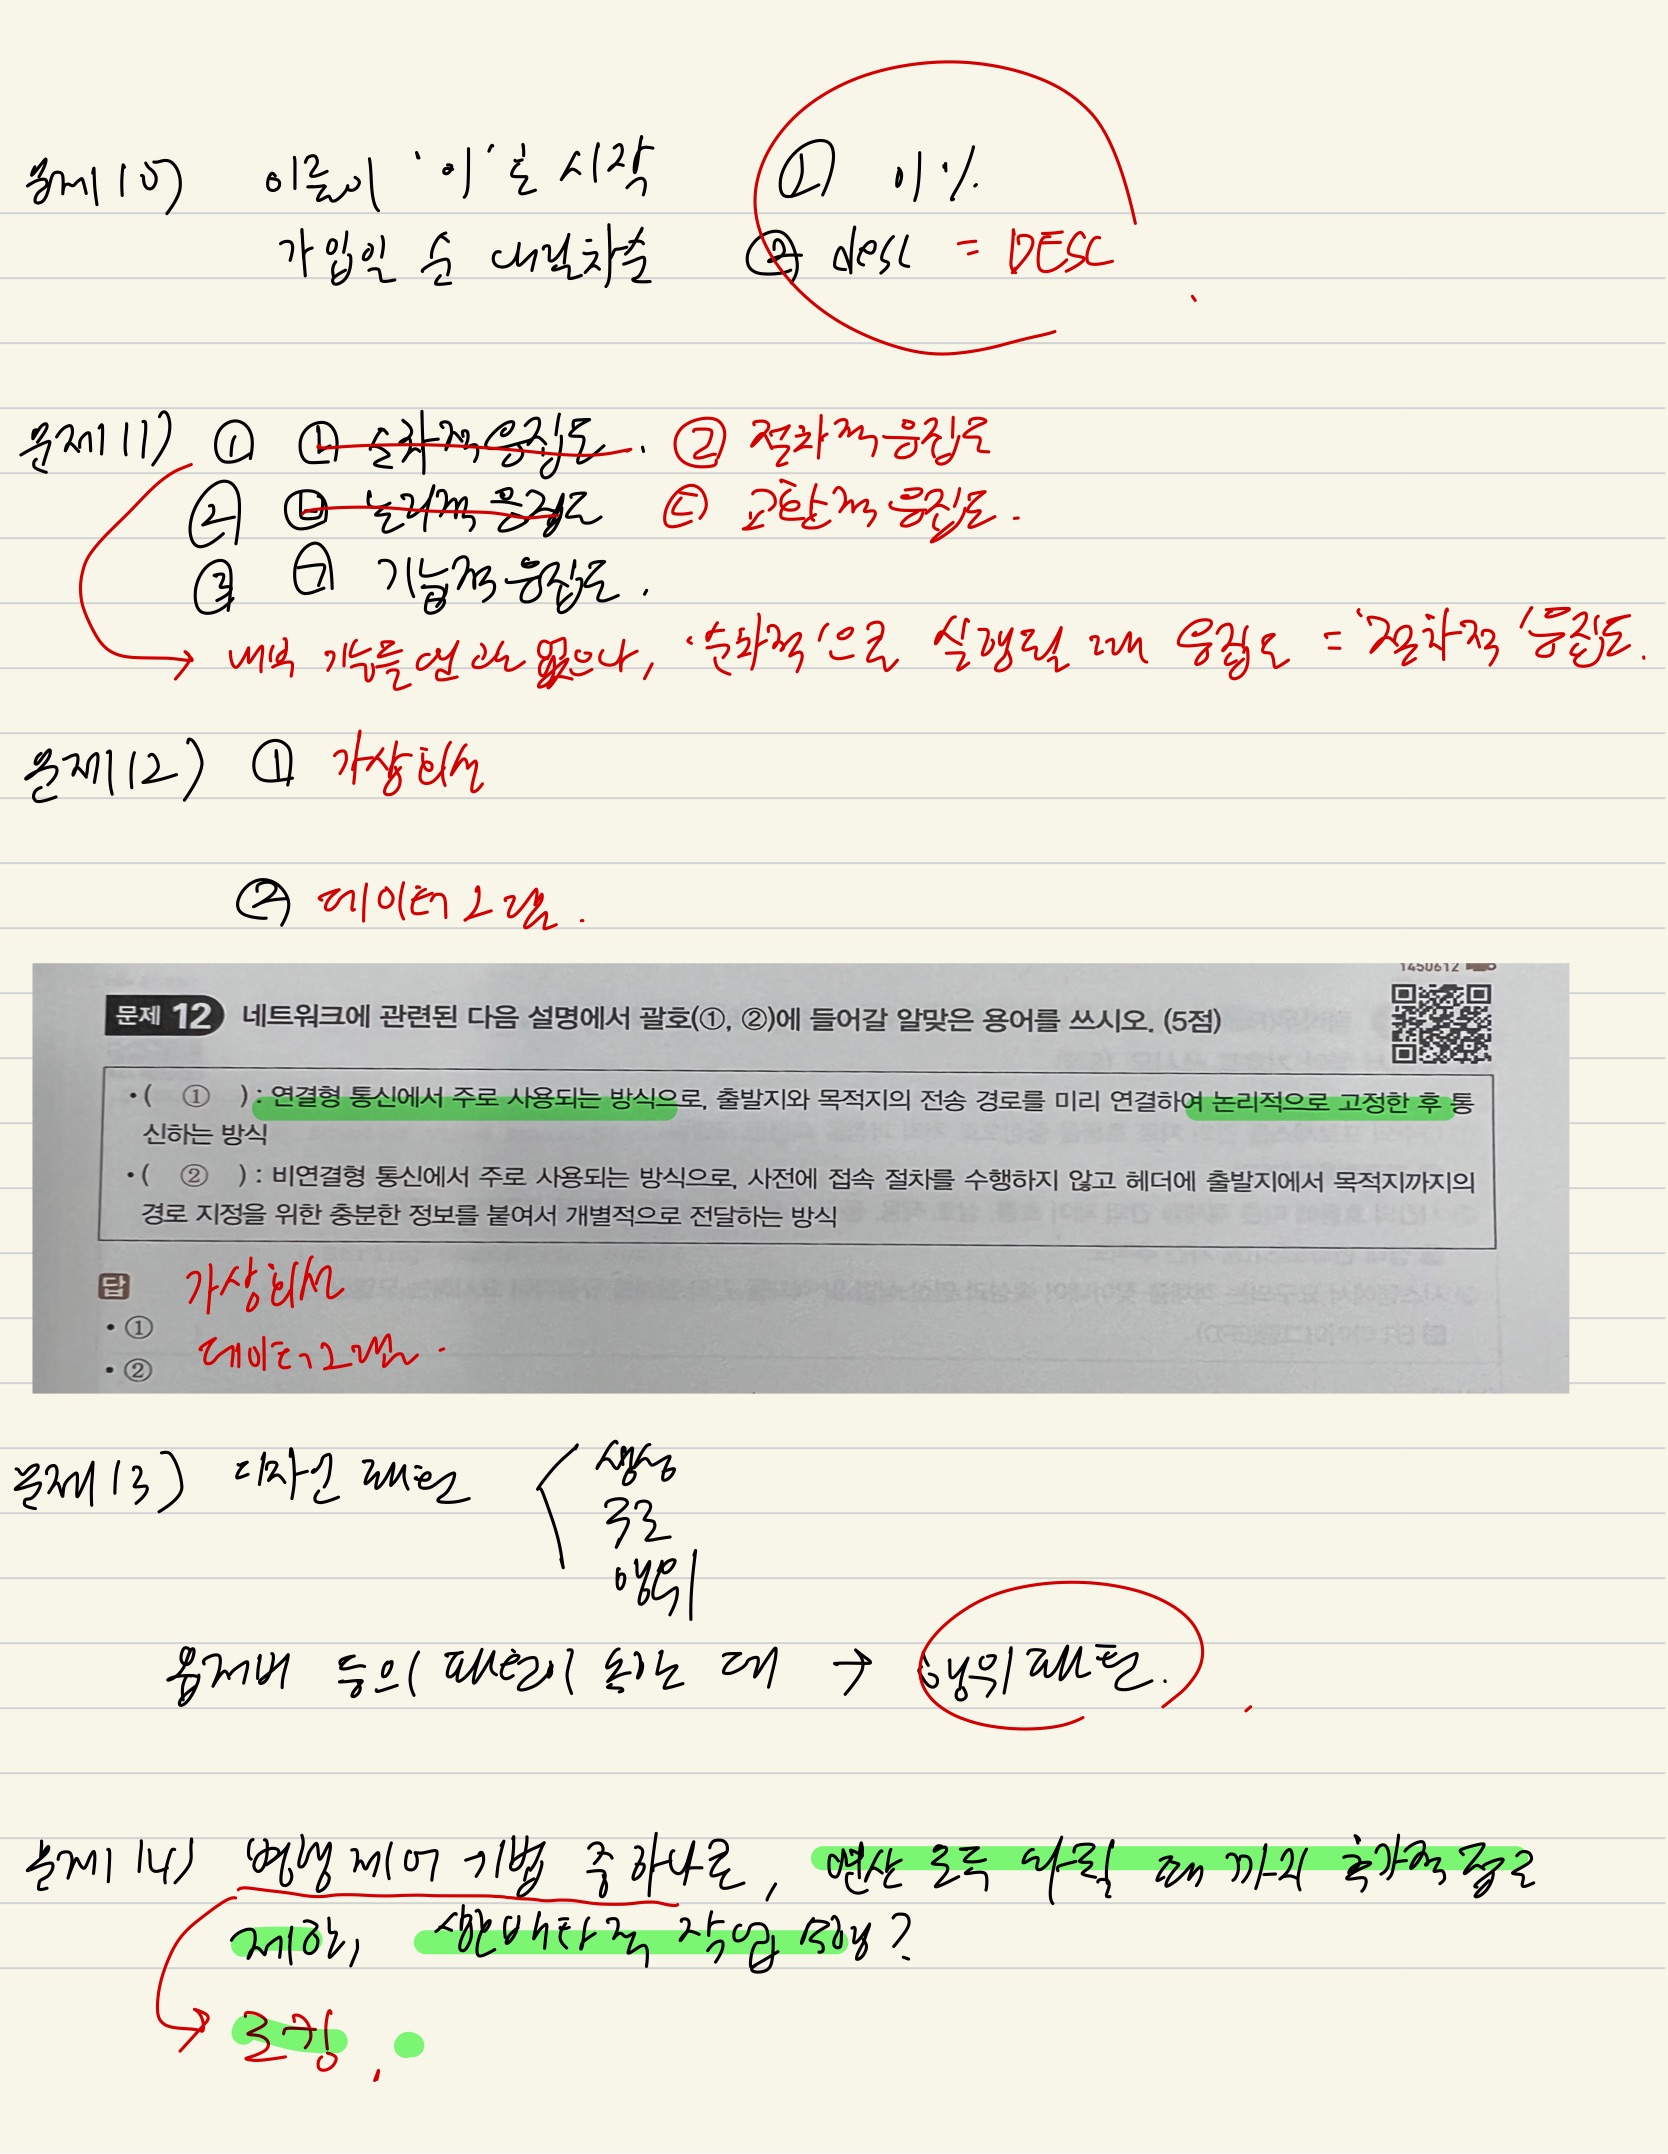 문제10) 이름이 '이'로 시작 ① 이%
가입일 순 내림차순 ② desc = DESC
문제11) ① ㄴ 순차적 응집도. ② 절차적 응집도
② ㅂ 논리적 응집도 ㄷ 교환적 응집도.
③ ㄱ 기능적 응집도.
→ 내부 기능들 연관 없으나, '순차적'으로 실행될 때 응집도 = '절차적' 응집도.
문제12) ① 가상회선
② 데이터그램.
1450612
문제 12 네트워크에 관련된 다음 설명에서 괄호(①, ②)에 들어갈 알맞은 용어를 쓰시오. (5점)
• ( ① ) : 연결형 통신에서 주로 사용되는 방식으로, 출발지와 목적지의 전송 경로를 미리 연결하여 논리적으로 고정한 후 통
신하는 방식
• ( ② ) : 비연결형 통신에서 주로 사용되는 방식으로, 사전에 접속 절차를 수행하지 않고 헤더에 출발지에서 목적지까지의
경로 지정을 위한 충분한 정보를 붙여서 개별적으로 전달하는 방식
답 가상회선
• ①
데이터그램.
• ②
문제13) 디자인 패턴 생성
구조
행위
옵저버 등의 패턴이 속하는 데 → 행위 패턴.
문제14) 병행 제어 기법 중 하나로, 연산 모두 마칠 때 까지 추가적 접근
제한, 상호배타적 작업 수행?
→ 로킹.